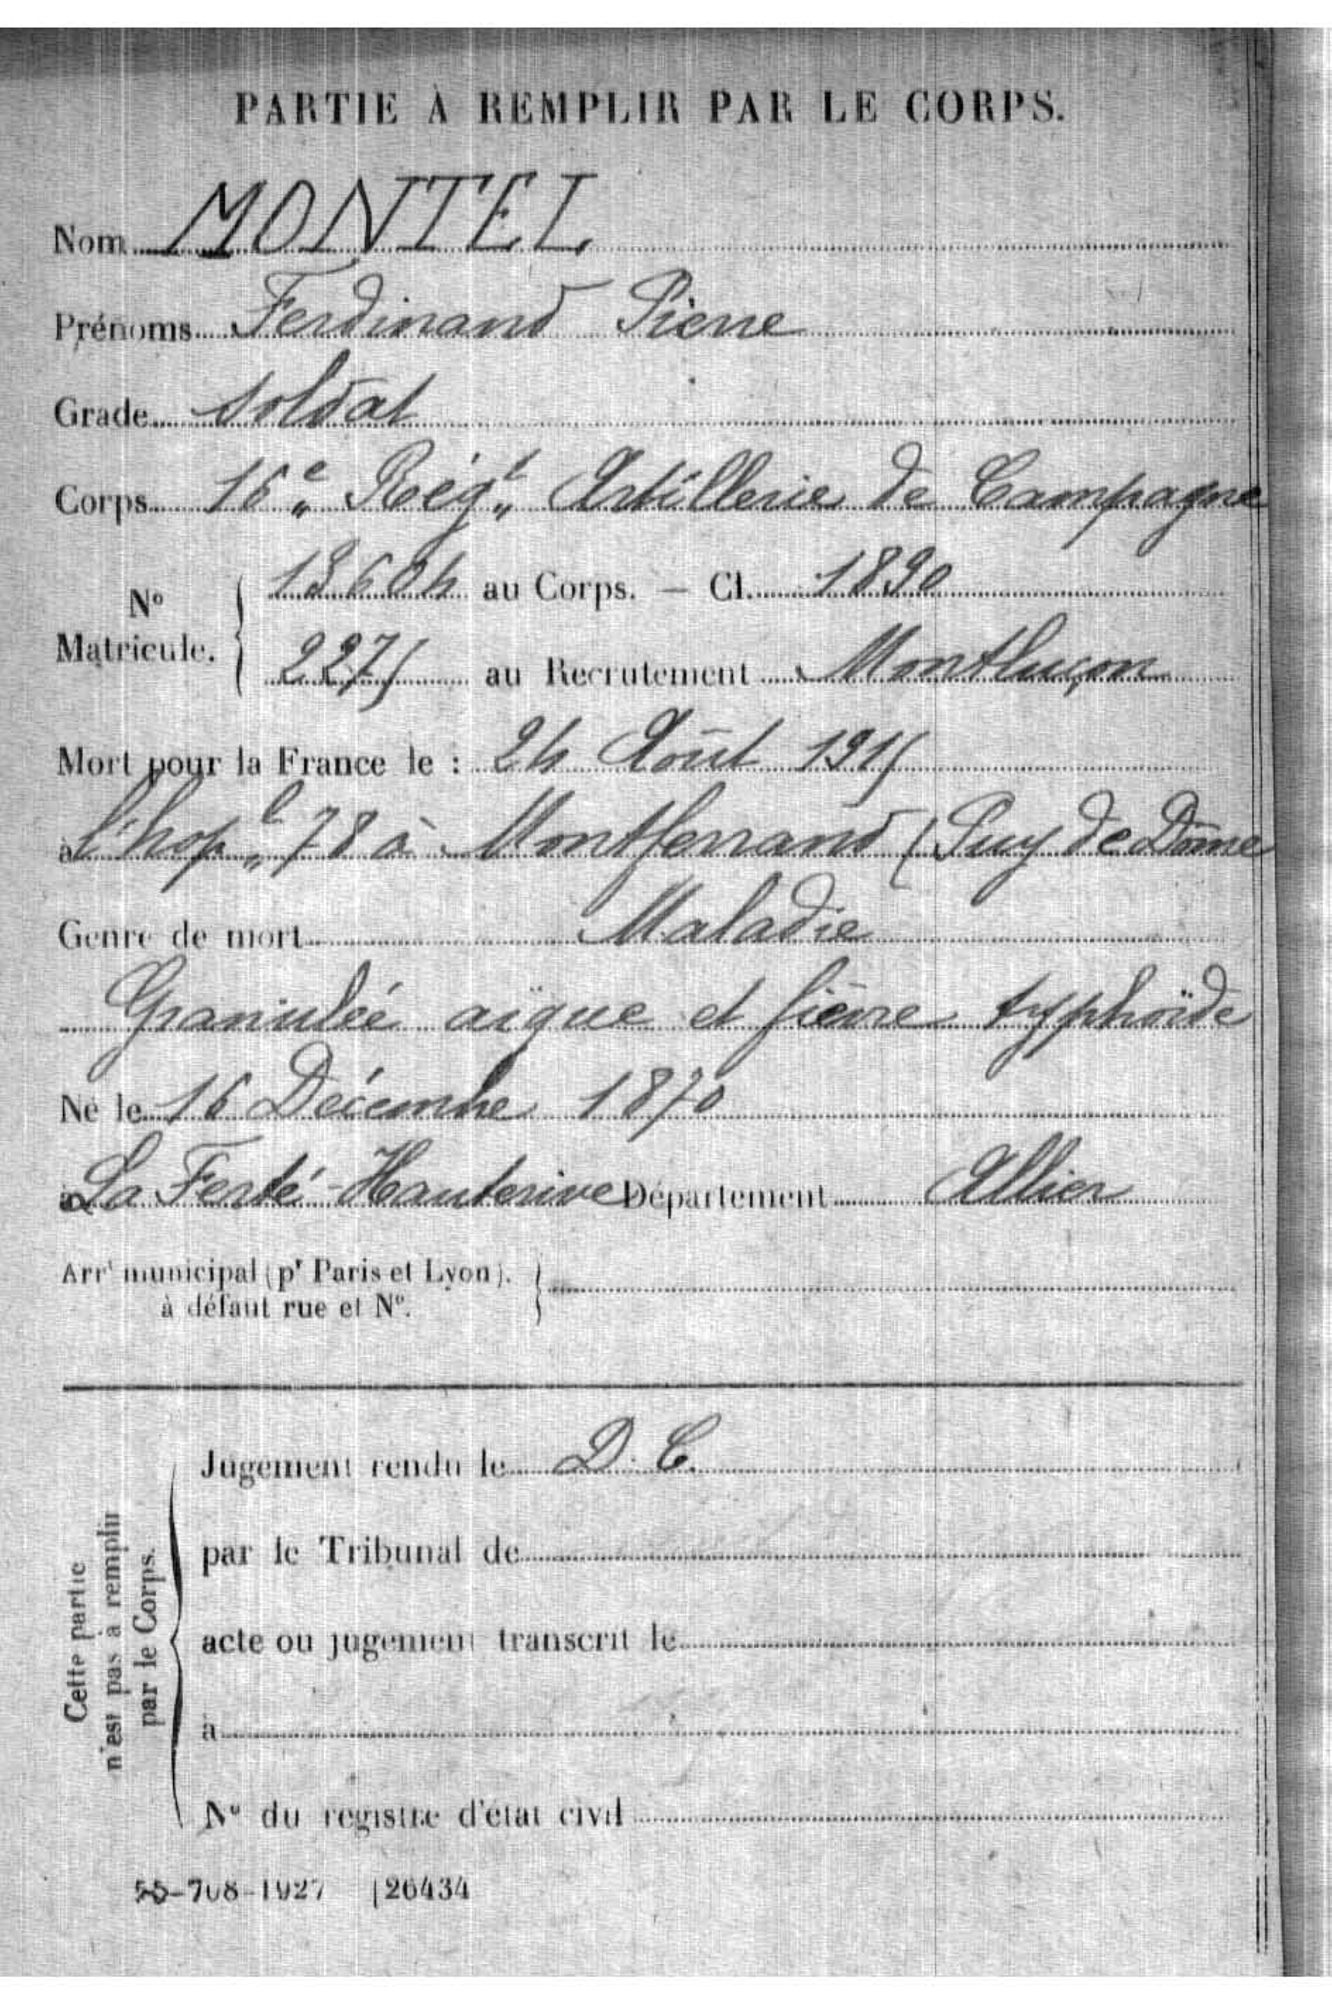 PARTIE À REMPLIR PAR LE CORPS.
Nom MONTEL
Prénoms Ferdinand Pierre
Grade Soldat
Corps 16e Régt Artillerie de Campagne
No Matricule. 13604 au Corps. — Cl. 1890
2275 au Recrutement Montluçon
Mort pour la France le : 24 Août 1915
à l'hopl 78 à Montferrand (Puy de Dôme
Genre de mort Maladie
Granulée aïgue et fièvre typhoïde
Né le 16 Décembre 1870
à La Ferté-Hauterive Département Allier
Arrt municipal (pr Paris et Lyon).
à défaut rue et No.
Cette partie
n'est pas à remplir
par le Corps.
Jugement rendu le D. C.
par le Tribunal de
acte ou jugement transcrit le
à
No du registre d'état civil
55-708-1927 |26434